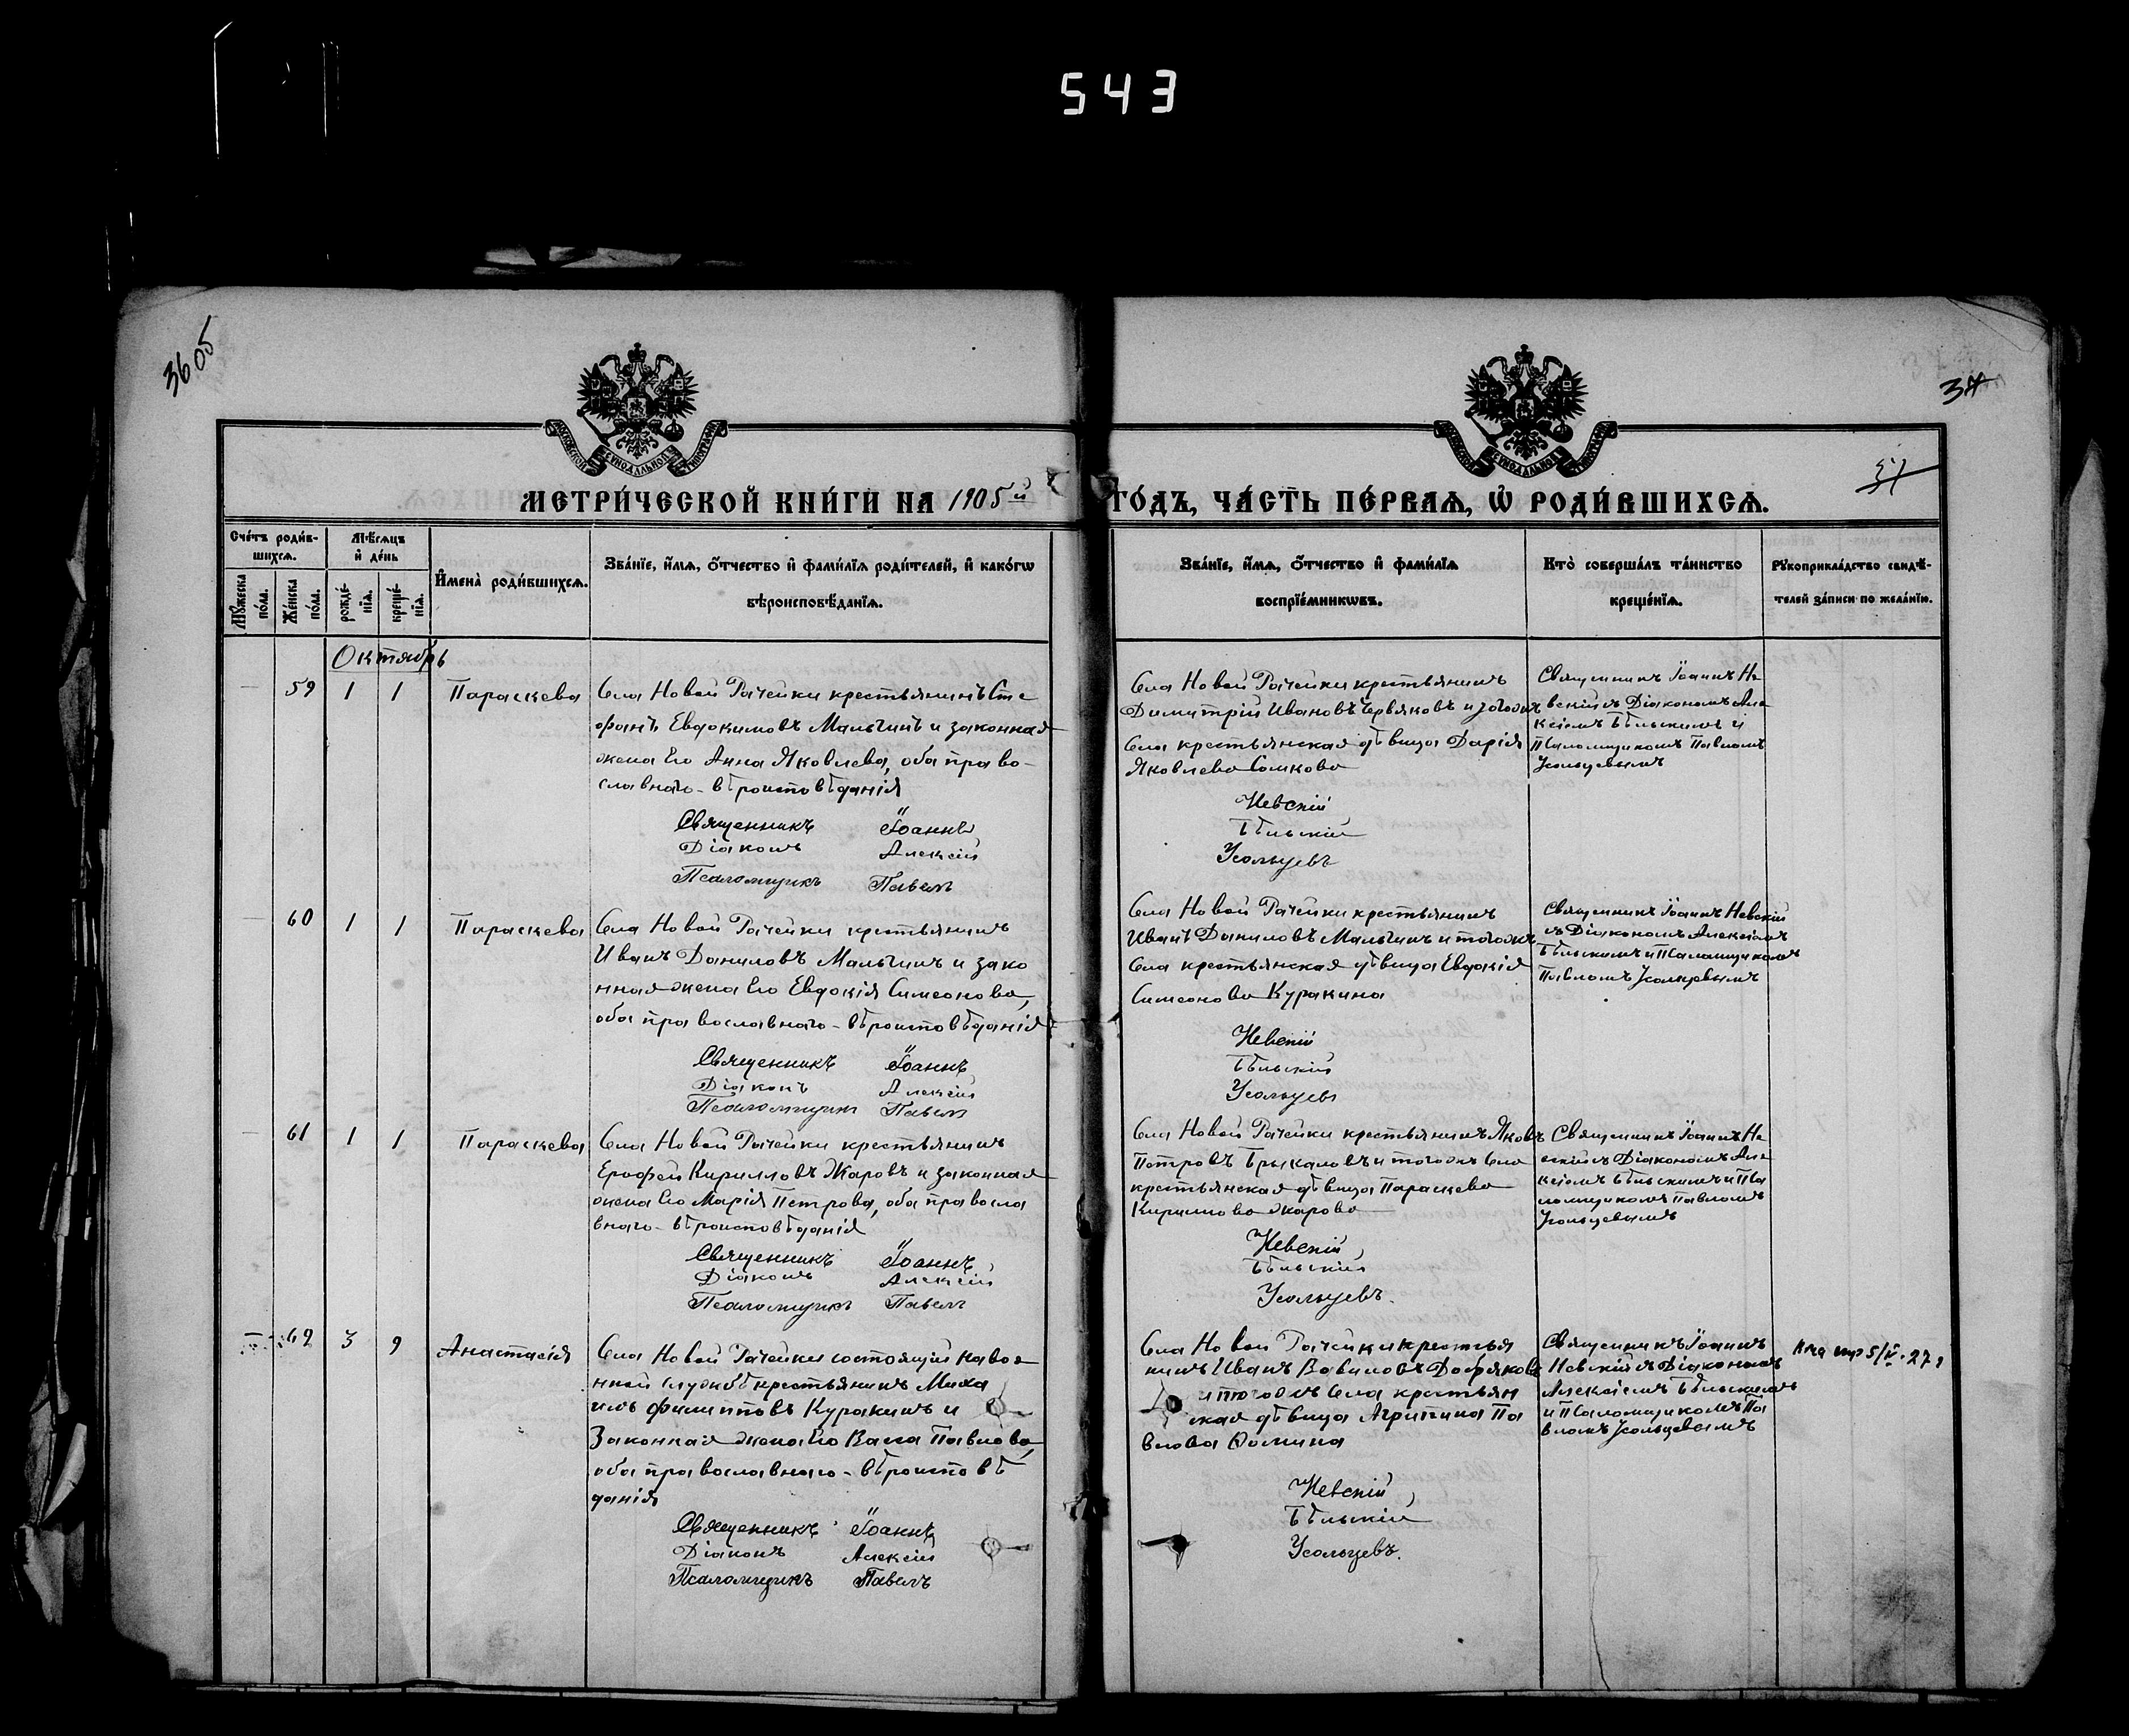 543
3605
37
МОСКОВСКОЙ СѴНОДАЛЬНОЙ ТИПОГРАФІИ
МОСКОВСКОЙ СѴНОДАЛЬНОЙ ТИПОГРАФІИ
57
МЕТРИ́ЧЕСКОЙ КНИ́ГИ НА 1905й ГО́ДЪ, ЧА́СТЬ ПЕ́РВАѦ, Ѡ҆ РОДИ́ВШИХСѦ.
Сче́тъ роди́в-
шихсѧ.
Мѣ́сѧцъ
и҆ де́нь
Мꙋ́жеска по́ла.
Же́нска по́ла.
рожде́-нїѧ.
креще́-нїѧ.
И҆мена̀ роди́вшихсѧ.
Зва́нїе, и҆́мѧ, ѻ҆́тчество и҆ фами́лїѧ роди́телей, и҆ како́гѡ
вѣроисповѣ́данїѧ.
Зва́нїе, и҆́мѧ, ѻ҆́тчество и҆ фами́лїѧ
воспрїе́мникѡвъ.
Кто̀ соверша́лъ та́инство
креще́нїѧ.
Рꙋкоприкла́дство свидѣ́-
телей за́писи по жела́нїю.
Октябрь
59 1 1 Параскева
Села Новой Рачейки крестьянинъ Сте
фанъ Евдокимовъ Мальгинъ и законная
жена его Анна Яковлева, оба право-
славнаго-вѣроисповѣданія
Священникъ Іоаннъ
Діаконъ Алексій
Псаломщикъ Павелъ
Села Новой Рачейки крестьянинъ
Димитрій Ивановъ Червяковъ и тогожъ
Села крестьянская дѣвица Дарія
Яковлева Сомкова
Невскій
Бѣльскій
Усольцевъ
Священникъ Іоаннъ Не
вскій съ Діакономъ Але
ксіемъ Бѣльскимъ и
Псаломщикомъ Павломъ
Усольцевымъ
60 1 1 Параскева
Села Новой Рачейки крестьянинъ
Иванъ Даниловъ Мальгинъ и зако
нная жена его Евдокія Симеонова,
оба православнаго-вѣроисповѣданія
Священникъ Іоаннъ
Діаконъ Алексій
Псаломщикъ Павелъ
Села Новой Рачейки крестьянинъ
Иванъ Даниловъ Мальгинъ и тогожъ
Села крестьянская дѣвица Евдокія
Симеонова Куракина
Невскій
Бѣльскій
Усольцевъ
Священникъ Іоаннъ Невскій
съ Діакономъ Алексіемъ
Бѣльскимъ и Псаломщикомъ
Павломъ Усольцевымъ
61 1 1 Параскева
Села Новой Рачейки крестьянинъ
Ерофей Кирилловъ Жаровъ и законная
жена его Марія Петрова, оба правосла
внаго-вѣроисповѣданія
Священникъ Іоаннъ
Діаконъ Алексій
Псаломщикъ Павелъ
Села Новой Рачейки крестьянинъ Яковъ
Петровъ Брыкаловъ и тогожъ Села
крестьянская дѣвица Параскева
Кириллова Жарова
Невскій
Бѣльскій
Усольцевъ.
Священникъ Іоаннъ Не
вскій съ Діакономъ Але
ксіемъ Бѣльскимъ и Пса
ломщикомъ Павломъ
Усольцевымъ
62 3 9 Анастасія
Села Новой Рачейки состоящій на вое
нной службѣ крестьянинъ Миха
илъ Филипповъ Куракинъ и
Законная жена его Васса Павлова,
оба православнаго-вѣроисповѣ
данія
Священникъ Іоаннъ
Діаконъ Алексій
Псаломщикъ Павелъ
Села Новой Рачейки крестья
нинъ Иванъ Вавиловъ Добряковъ
и тогожъ Села крестьян
ская дѣвица Агрипина Па
влова Фомина
Невскій
Бѣльскій
Усольцевъ.
Священникъ Іоаннъ
Невскій съ Діакономъ
Алексіемъ Бѣльскимъ
и Псаломщикомъ Па
вломъ Усольцевымъ
5/IV-27г